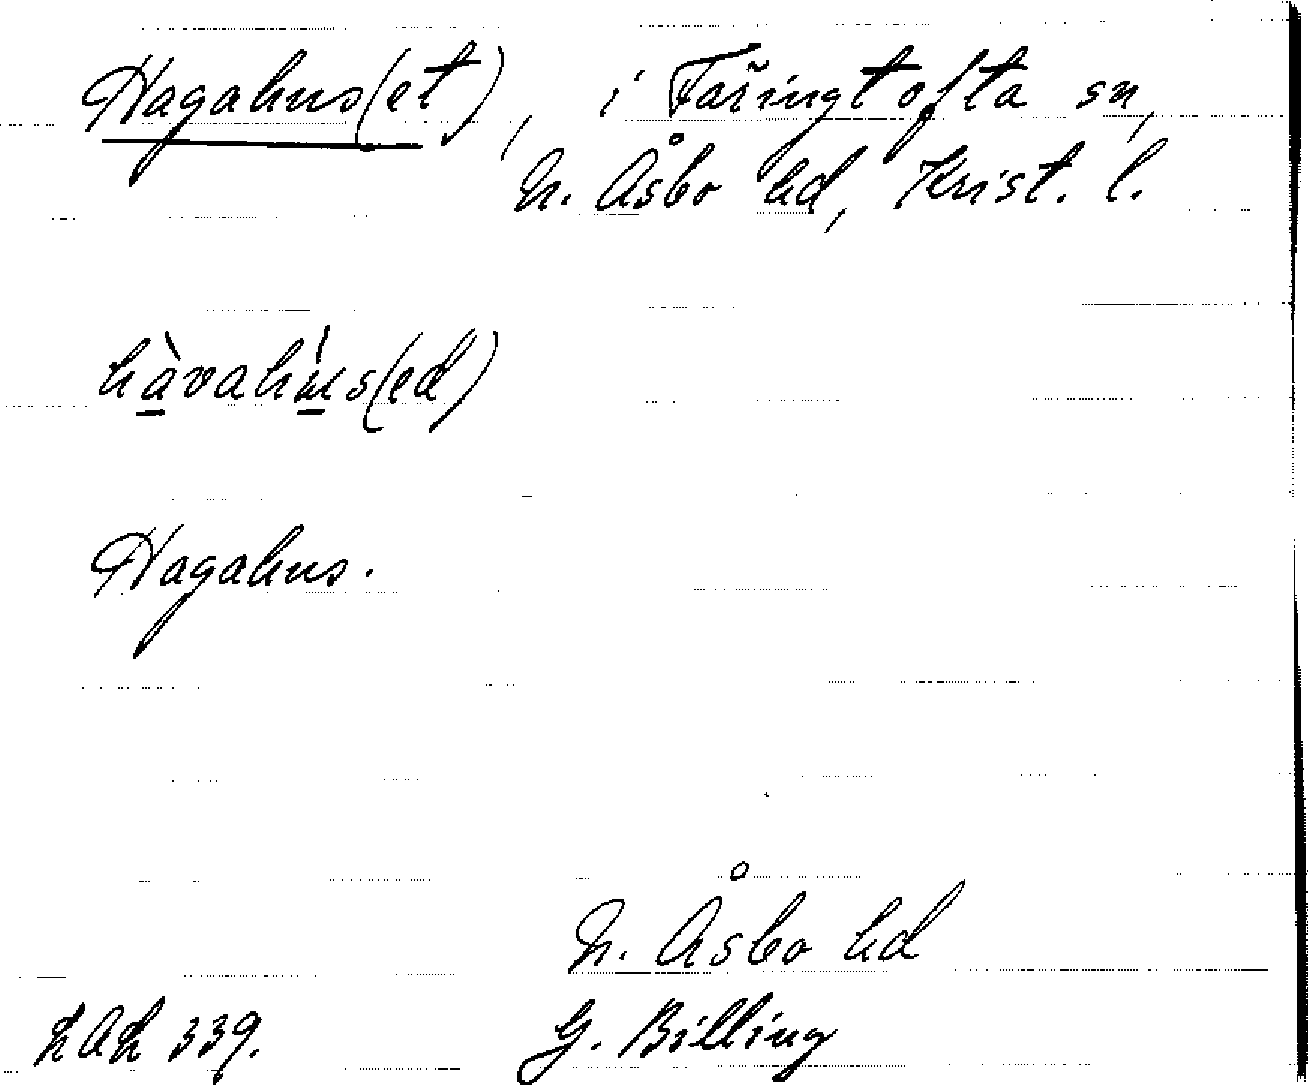 Hagahus(et), i Färingtofta sn,
N. Åsbo hd, Krist. l.
hàvahús(ed)
Hagahus.
N. Åsbo hd
LAL 339.
G. Billing